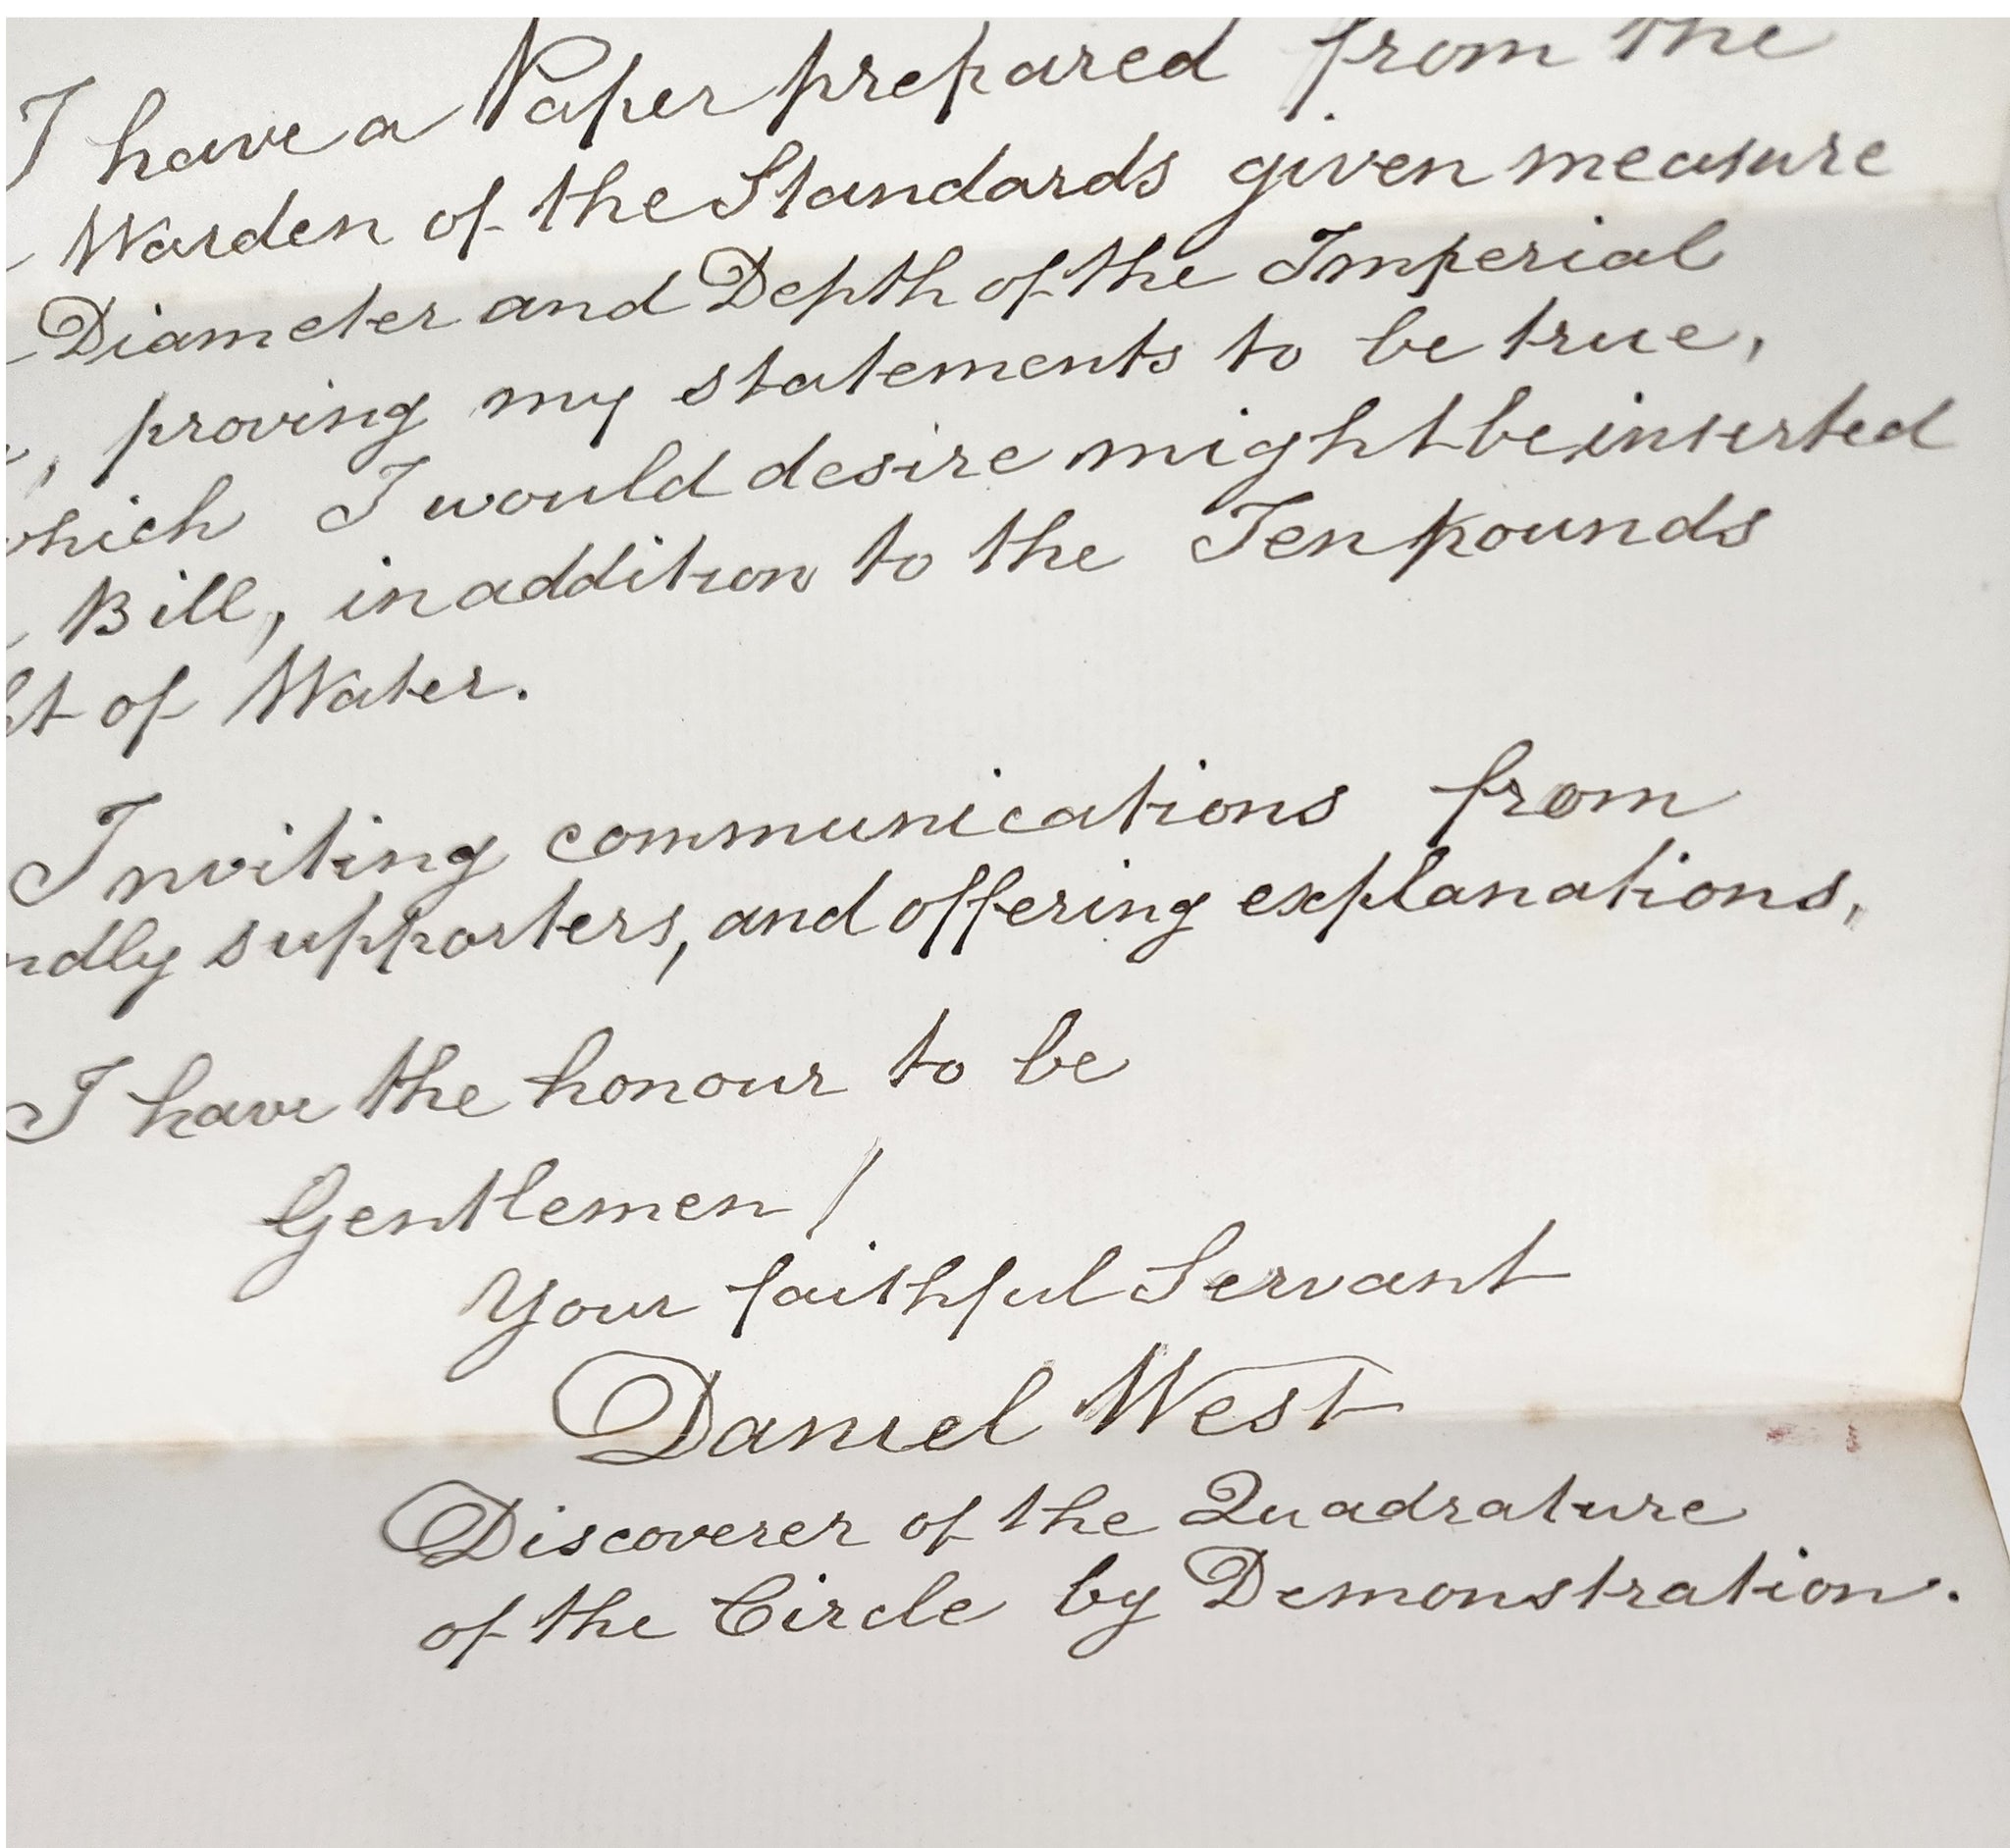 I have a Paper prepared from the
Warden of the Standards given measure
Diameter and Depth of the Imperial
, proving my statements to be true,
which I would desire might be inserted
Bill, in addition to the Ten pounds
of Water.
Inviting communications from
supporters, and offering explanations,
I have the honour to be
Gentlemen /
Your faithful Servant
Daniel West
Discoverer of the Quadrature
of the Circle by Demonstration.